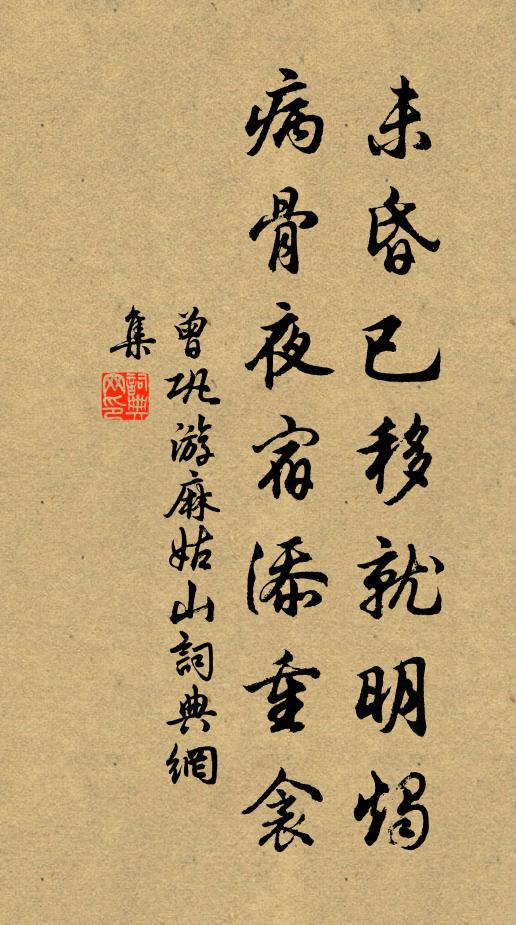 未昏已移就明燭
病骨夜宿添重衾
曾巩游麻姑山詞典網
集
詞典網印